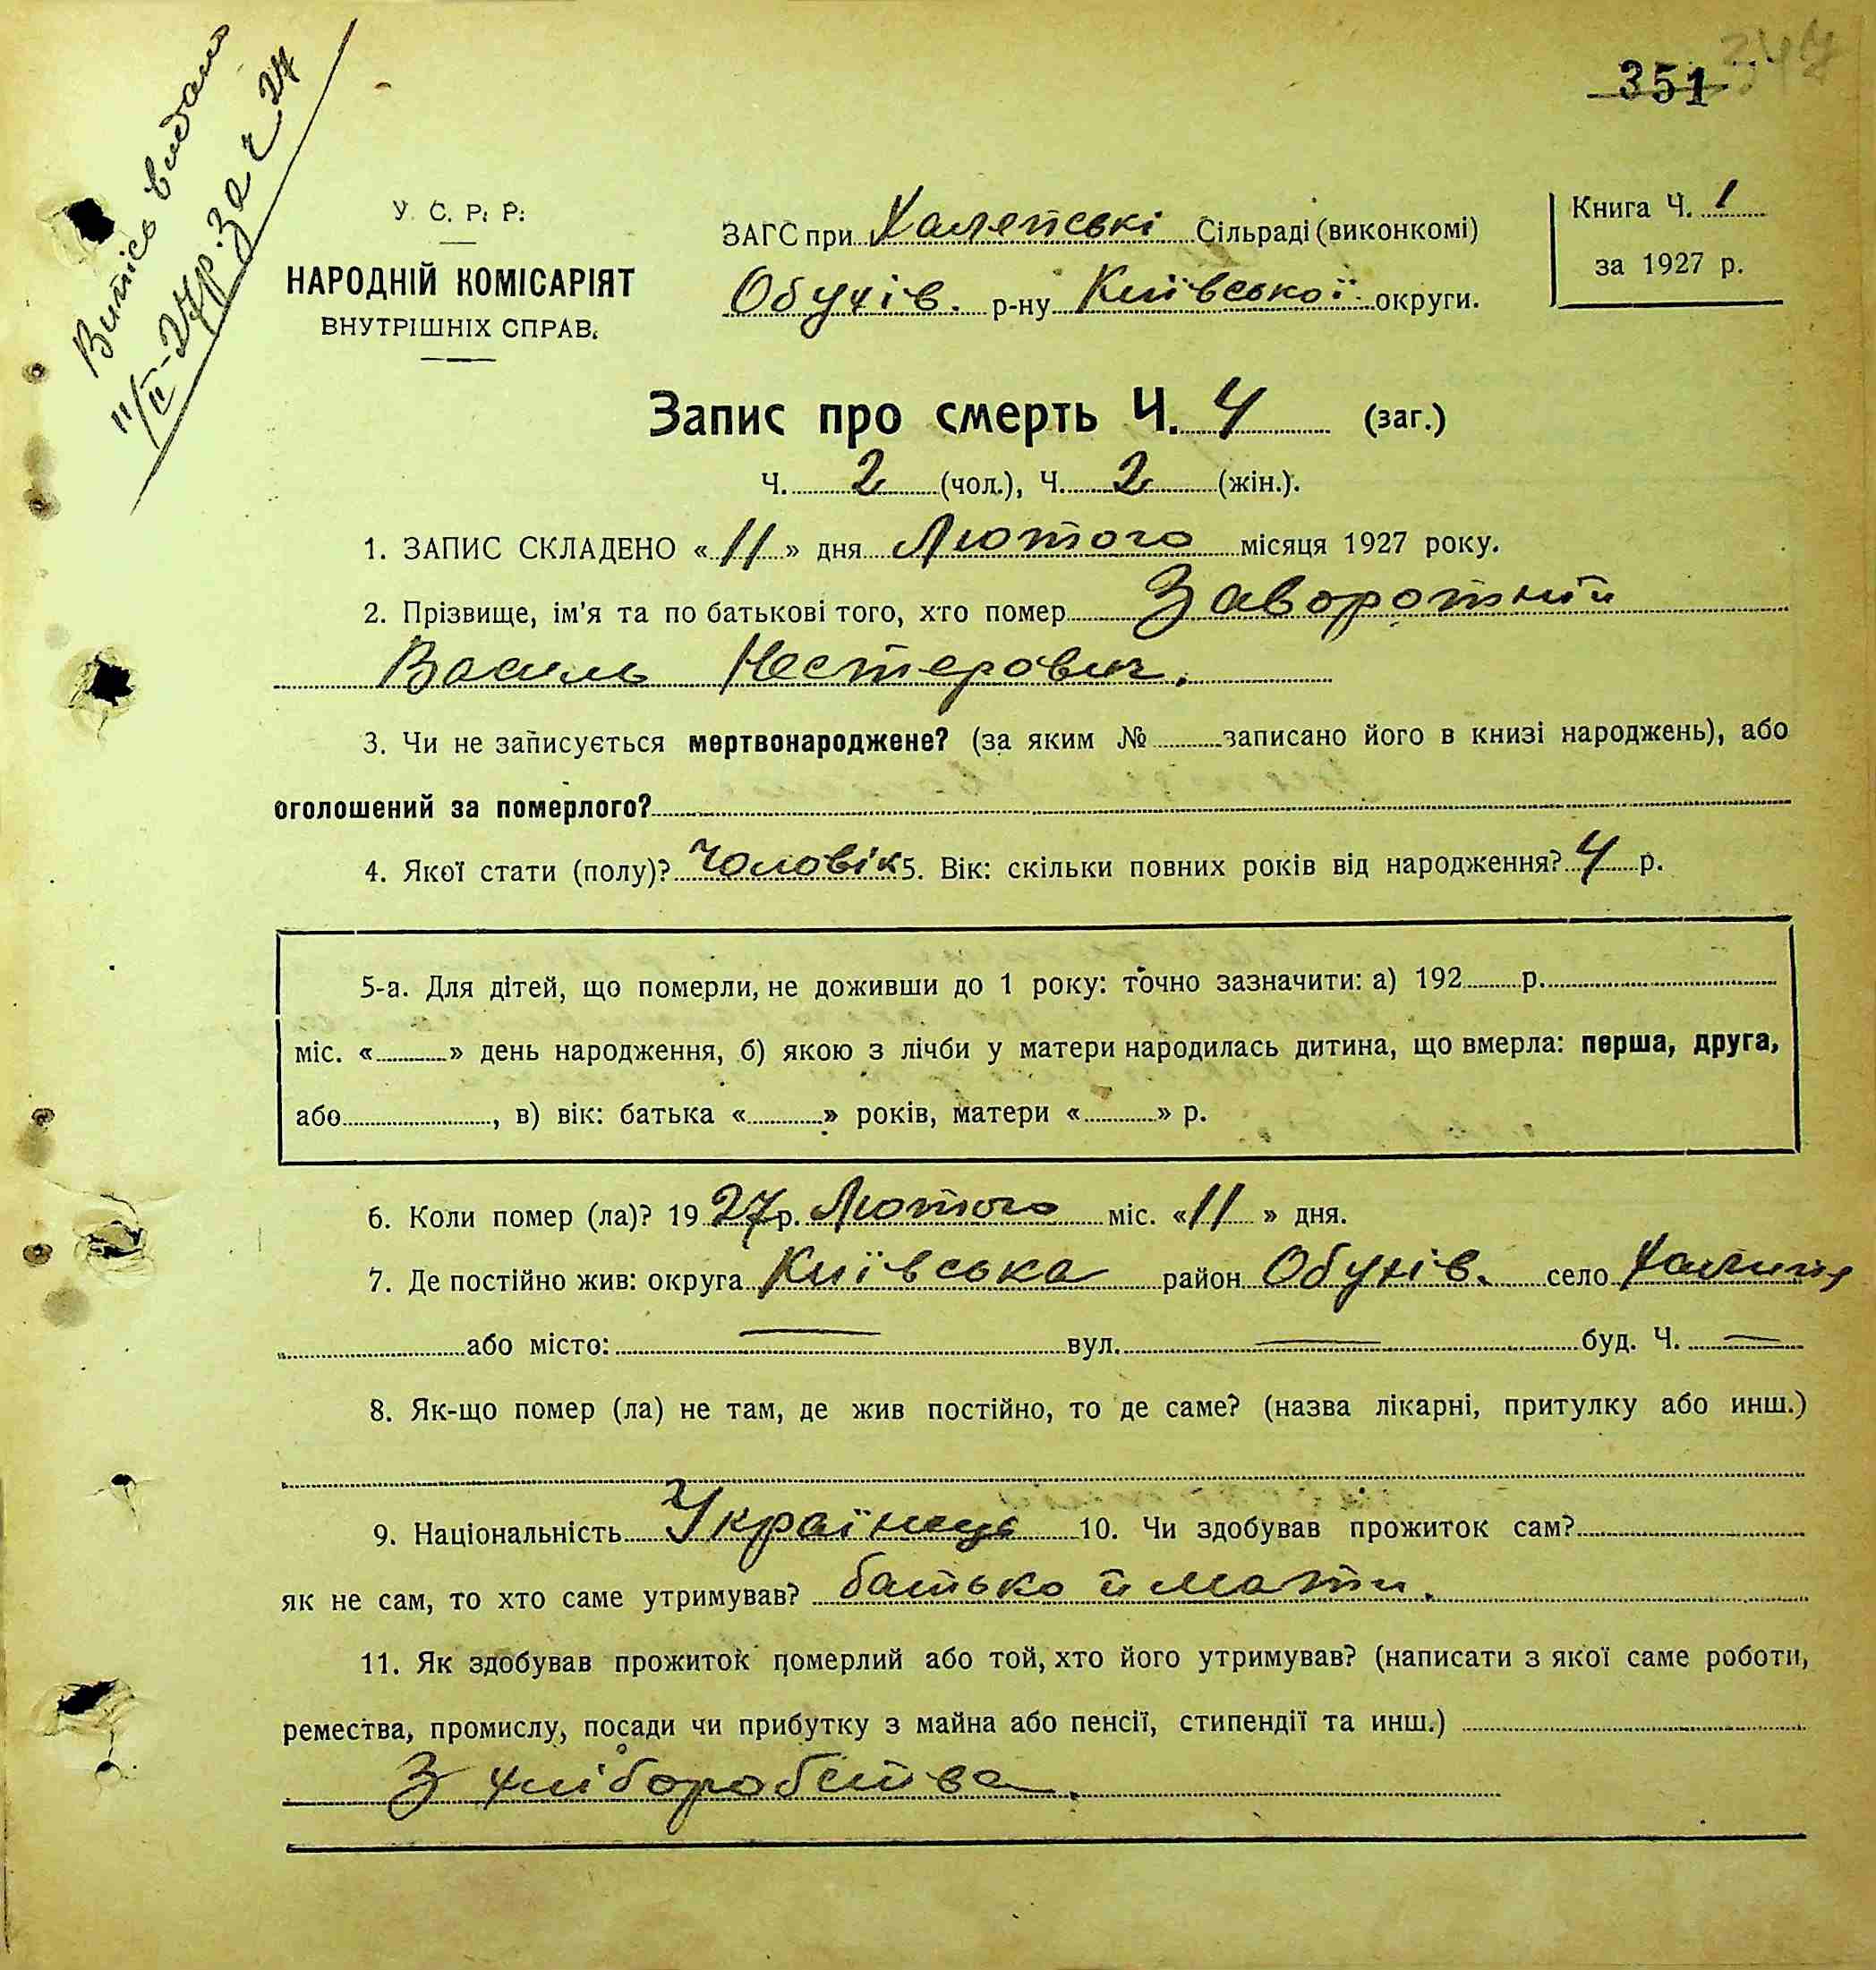 351 347
Витпісь видано
11/II-27р. За ч 24
У. С. Р. Р.
НАРОДНІЙ КОМІСАРІЯТ
ВНУТРІШНІХ СПРАВ.
ЗАГС при Халепські Сільраді (виконкомі)
Обухів. р-ну Київської округи.
Книга Ч. 1
за 1927 р.
Запис про смерть Ч. 4 (заг.)
Ч. 2 (чол.), Ч. 2 (жін.).
1. ЗАПИС СКЛАДЕНО «11» дня Лютого місяця 1927 року.
2. Прізвище, ім'я та по батькові того, хто помер Заворотній
Василь Нестерович.
3. Чи не записується мертвонароджене? (за яким № записано його в книзі народжень), або
оголошений за померлого?
4. Якої стати (полу)? Чоловік 5. Вік: скільки повних років від народження? 4 р.
5-а. Для дітей, що померли, не доживши до 1 року: точно зазначити: а) 192 р.
міс. « » день народження, б) якою з лічби у матери народилась дитина, що вмерла: перша, друга,
або , в) вік: батька « » років, матери « » р.
6. Коли помер (ла)? 1927 р. Лютого міс. «11» дня.
7. Де постійно жив: округа Київська район Обухів. село Халипя
або місто: — вул. — буд. Ч. —
8. Як-що помер (ла) не там, де жив постійно, то де саме? (назва лікарні, притулку або инш.)
9. Національність Українець 10. Чи здобував прожиток сам?
як не сам, то хто саме утримував? батько й мати.
11. Як здобував прожиток померлий або той, хто його утримував? (написати з якої саме роботи,
ремества, промислу, посади чи прибутку з майна або пенсії, стипендії та инш.)
З хліборобства.